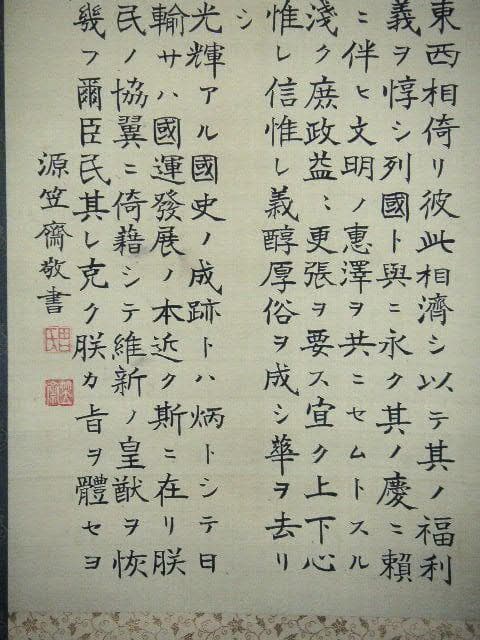 東西相倚リ彼此相濟シ以テ其ノ福利
義ヲ惇シ列國ト與ニ永ク其ノ慶ニ賴
ニ伴ヒ文明ノ惠澤ヲ共ニセムトスル
淺ク庶政益〻更張ヲ要ス宜ク上下心
惟レ信惟レ義醇厚俗ヲ成シ華ヲ去リ
シ
光輝アル國史ノ成跡トハ炳トシテ日
輸サハ國運發展ノ本近ク斯ニ在リ朕
民ノ協翼ニ倚藉シテ維新ノ皇猷ヲ恢
幾フ爾臣民其レ克ク朕カ旨ヲ體セヨ
源笠齋敬書